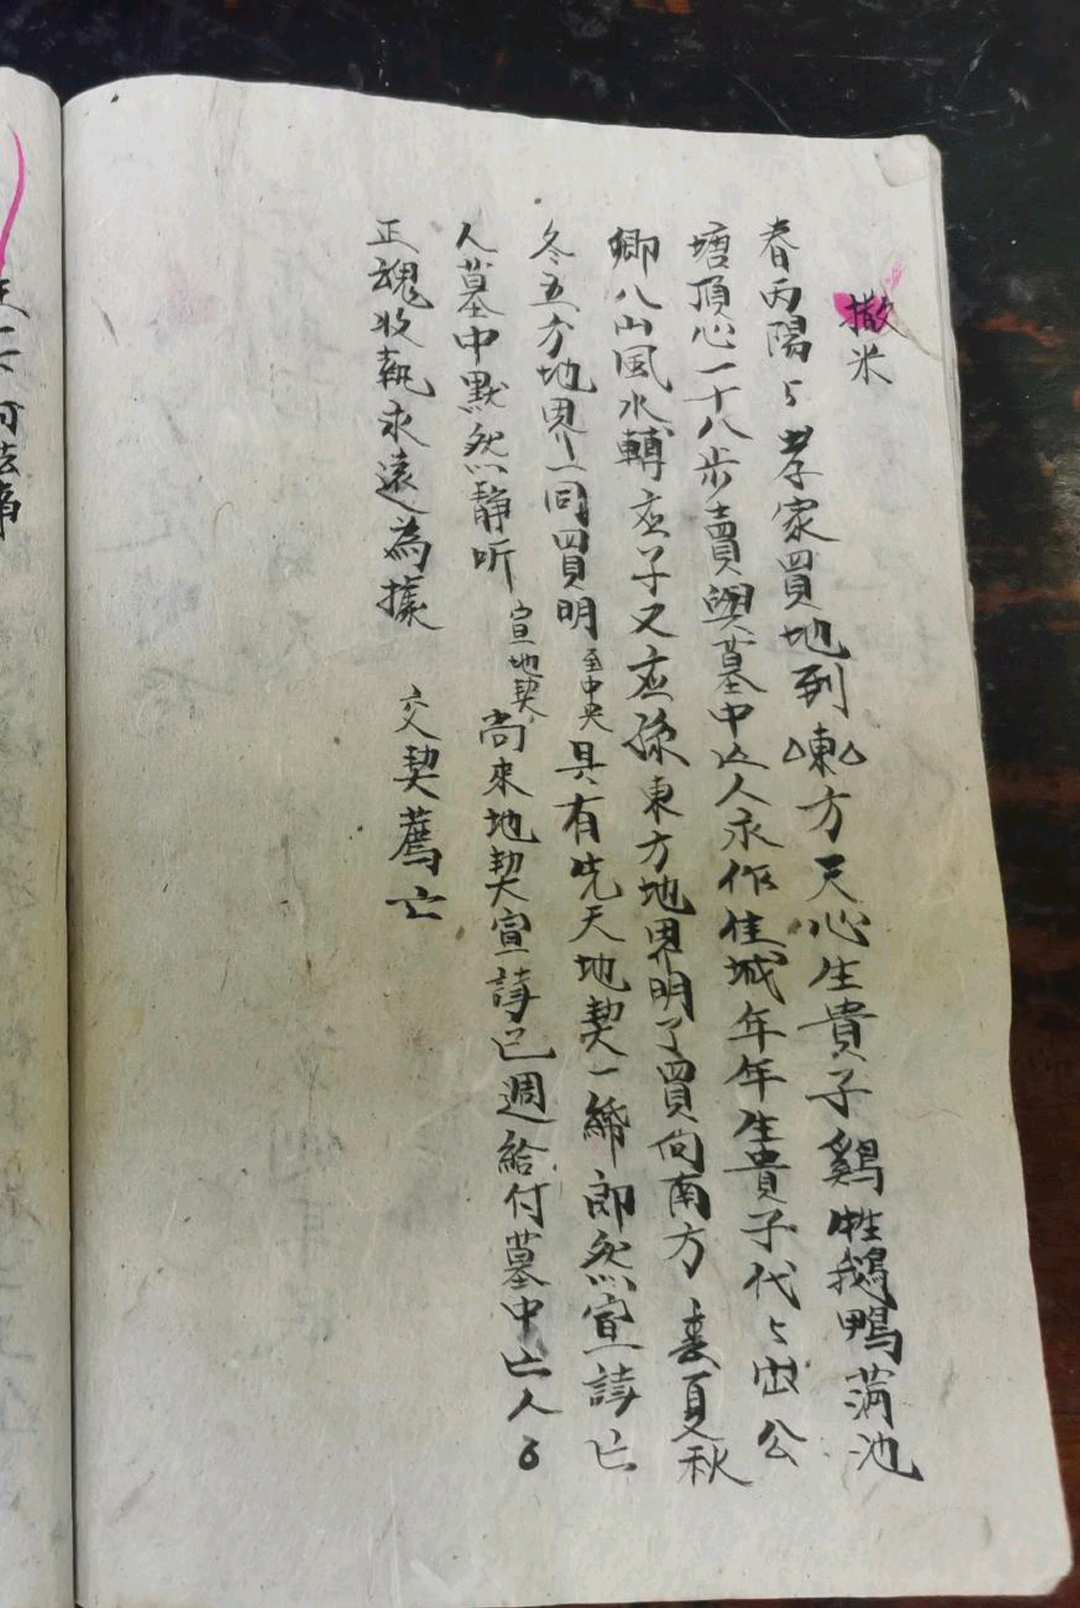 撒米
春丙陽々孝家買地到東方天心生貴子鷄牲鵝鴨满池
塘頂心一十八步賣與墓中亾人永作佳城年年生貴子代々出公
卿八山風水轉應子又應孫東方地界明了買向南方 夏秋
冬五方地界一同買明至中央具有先天地契一紙郎然宣讀亡
人墓中默然静听宣地契尚來地契宣讀已週給付墓中亡人
正魂收執永遠為據 交契薦亡